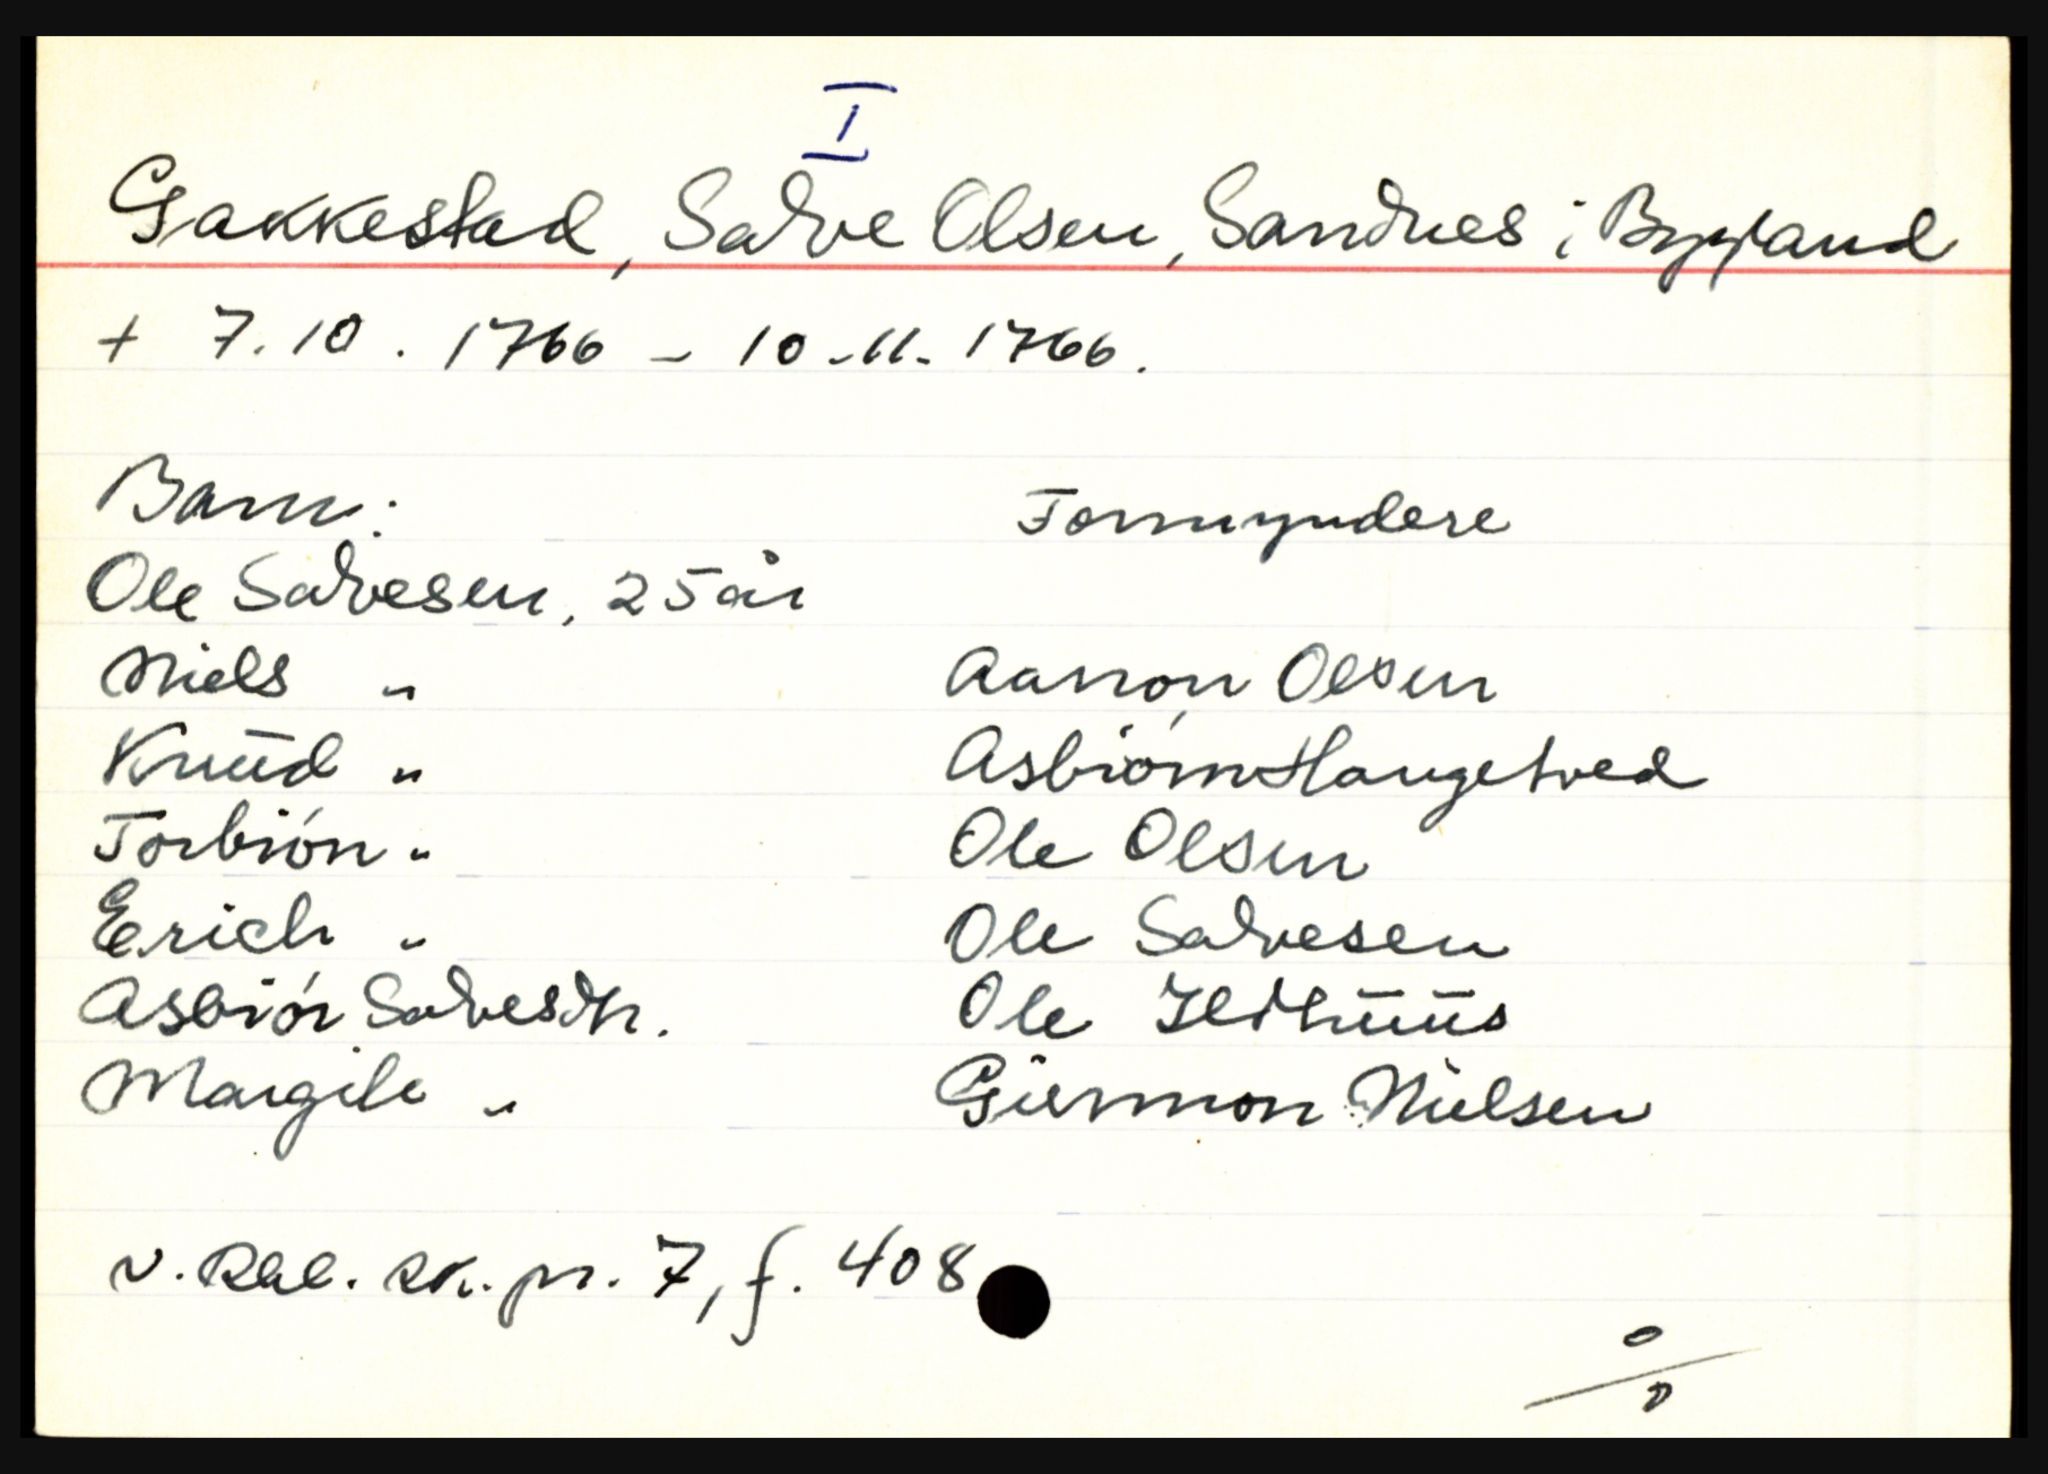 I
Gakkestad, Salve Olsen, Sandnes i Bygland
+ 7.10. 1766 - 10-11-1766.
Barn: Formyndere
Ole Salvesen, 25 år
Niels " Aanon Olsen
Knud " Asbiörn Haugetved
Torbiön " Ole Olsen
Erich " Ole Salvesen
Asbiör Salvesdtr. Ole Ildhuus
Margile " Giermon Nielsen
v. Rbl. sk. pr. 7, f. 408
0/0